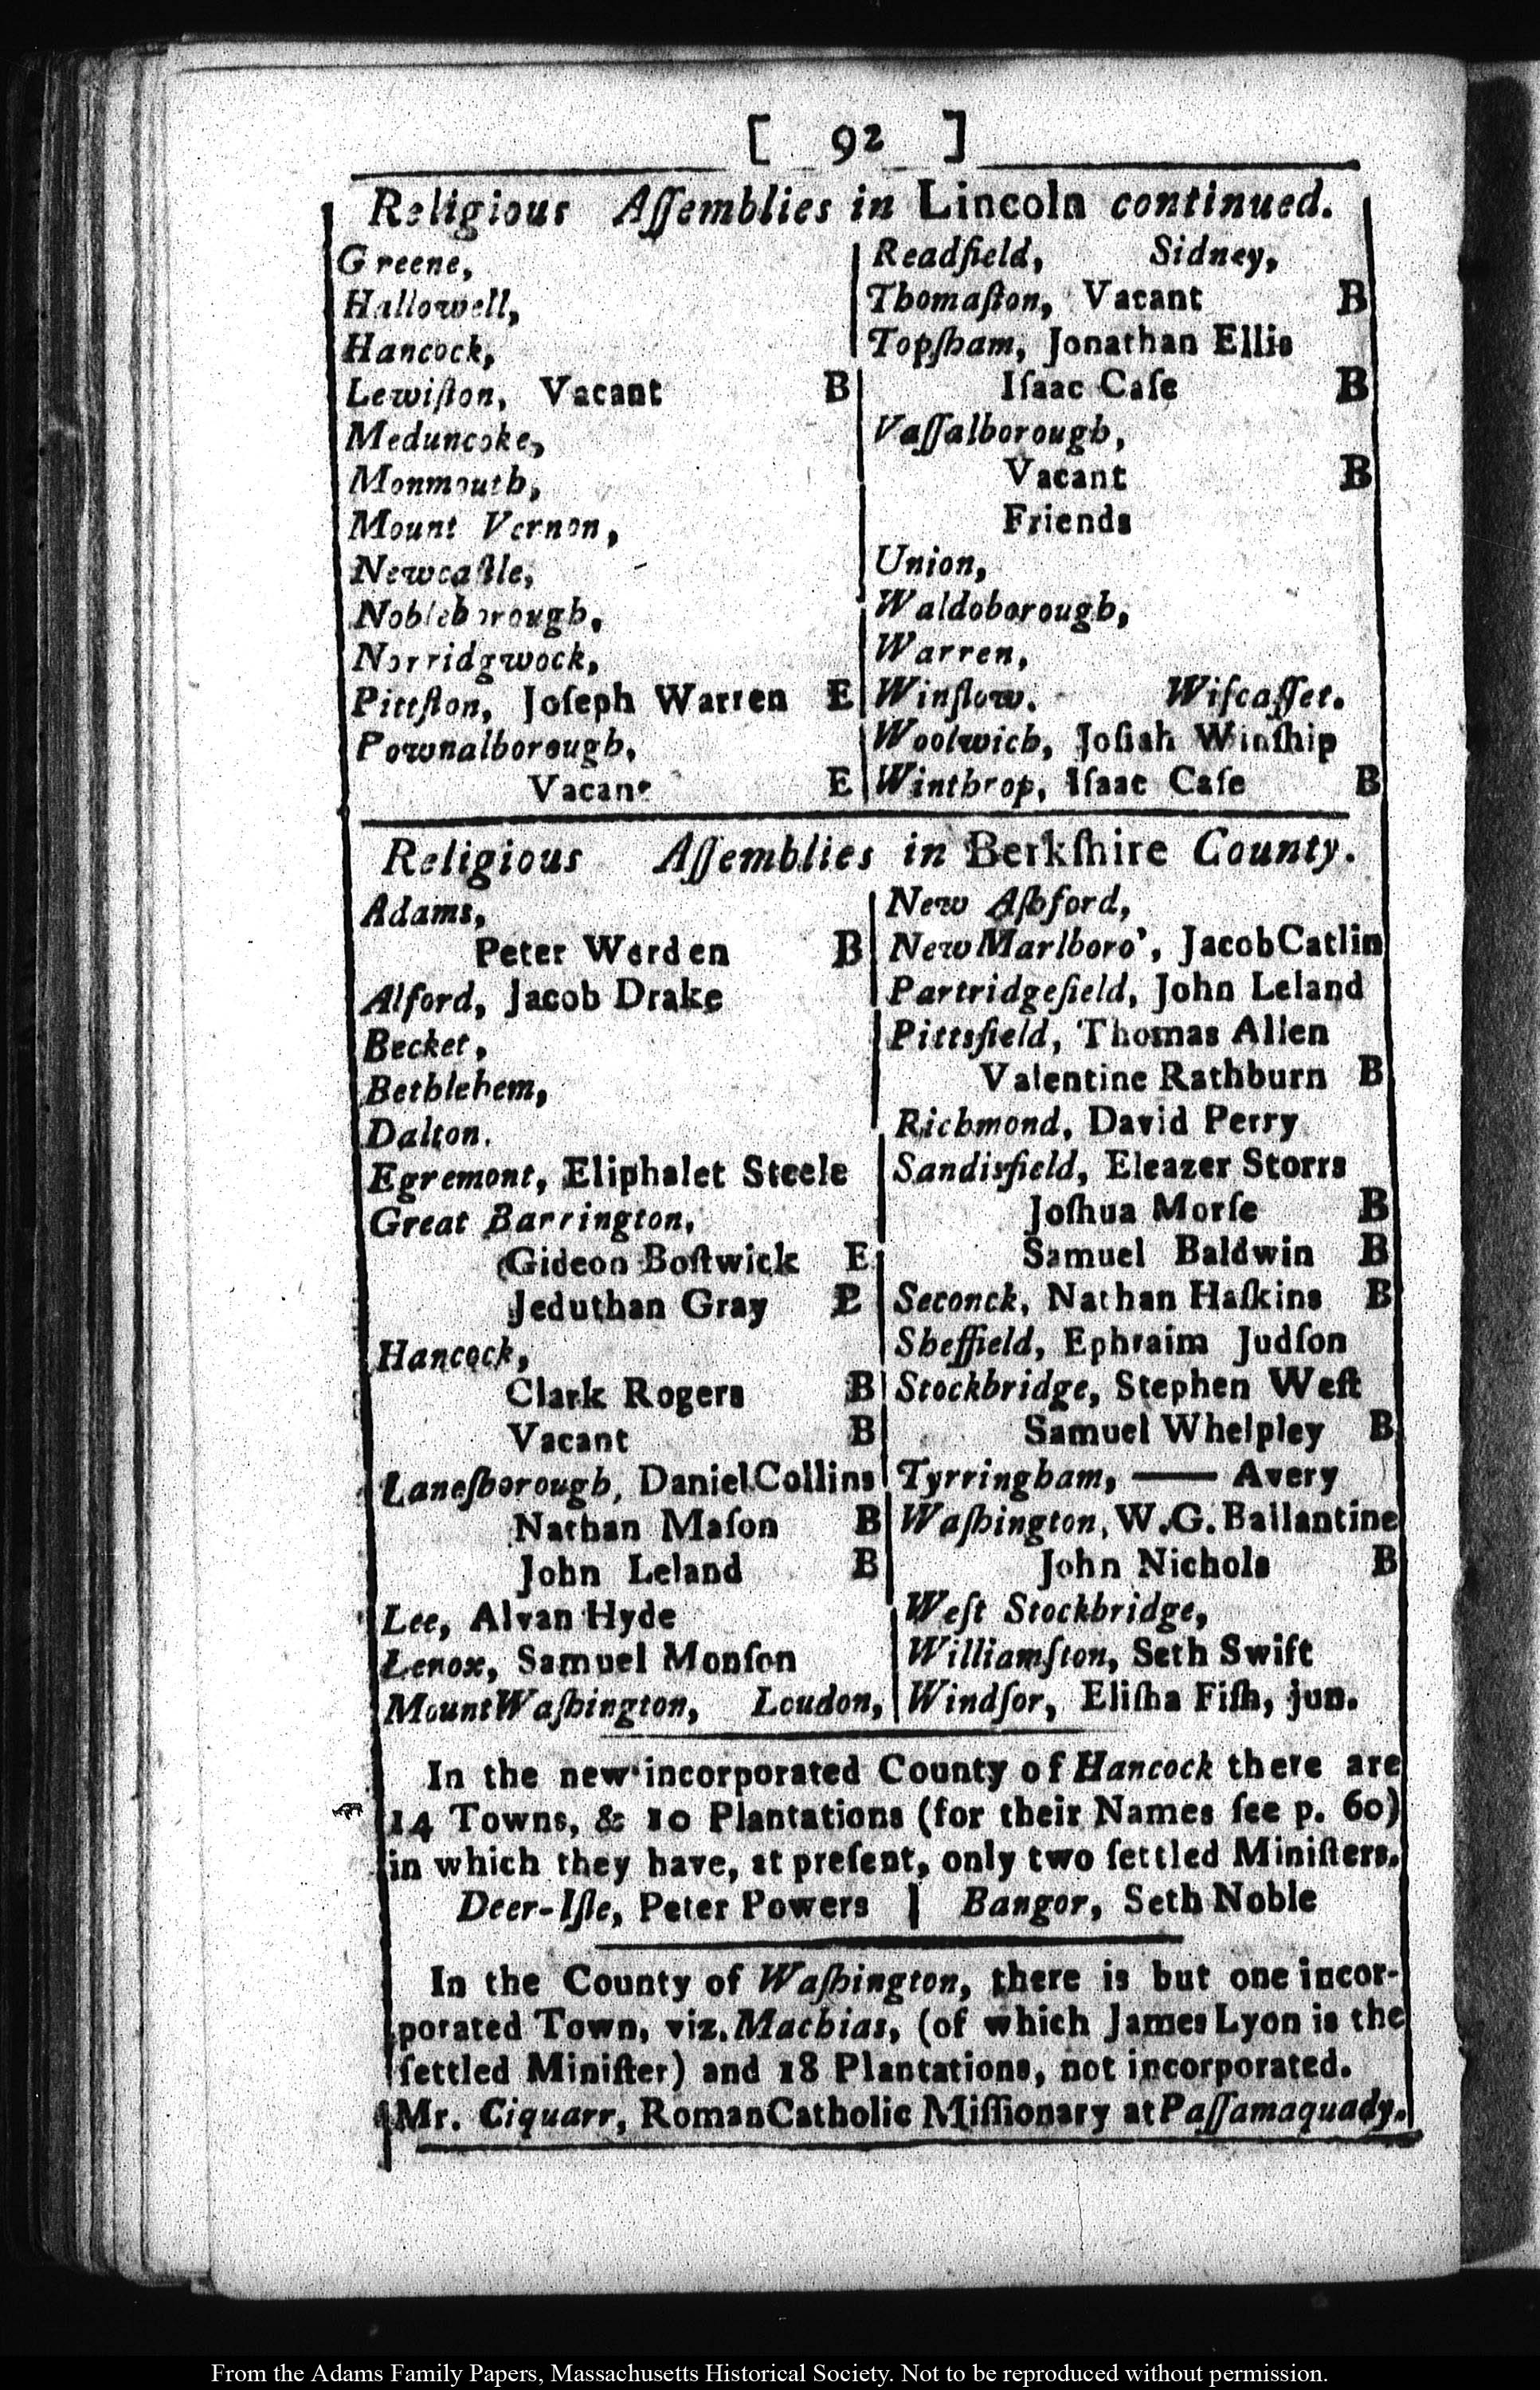 [ 92 ]
Religious Aſſemblies in Lincoln continued.
Greene,
Hallowell,
Hancock,
Lewiſton, Vacant B
Meduncoke,
Monmouth,
Mount Vernon,
Newcaſtle,
Nobleborough,
Norridgwock,
Pittſton, Joſeph Warren E
Pownalborough,
Vacant E
Readfield, Sidney,
Thomaſton, Vacant B
Topſham, Jonathan Ellis
Iſaac Caſe B
Vaſſalborough,
Vacant B
Friends
Union,
Waldoborough,
Warren,
Winſlow. Wiſcaſſet.
Woolwich, Joſiah Winſhip
Winthrop, Iſaac Caſe B
Religious Aſſemblies in Berkſhire County.
Adams,
Peter Werden B
Alford, Jacob Drake
Becket,
Bethlehem,
Dalton.
Egremont, Eliphalet Steele
Great Barrington,
Gideon Boſtwick E
Jeduthan Gray
Hancock,
Clark Rogers B
Vacant B
Laneſborough, Daniel Collins
Nathan Maſon B
John Leland B
Lee, Alvan Hyde
Lenox, Samuel Monſon
Mount Waſhington, Loudon,
New Aſhford,
New Marlboro', Jacob Catlin
Partridgefield, John Leland
Pittsfield, Thomas Allen
Valentine Rathburn B
Richmond, David Perry
Sandisfield, Eleazer Storrs
Joſhua Morſe B
Samuel Baldwin B
Seconck, Nathan Haſkins B
Sheffield, Ephraim Judſon
Stockbridge, Stephen Weſt
Samuel Whelpley B
Tyrringham, —— Avery
Waſhington, W. G. Ballantine
John Nichols B
Weſt Stockbridge,
Williamſton, Seth Swift
Windſor, Eliſha Fiſh, jun.
In the new incorporated County of Hancock there are
14 Towns, & 10 Plantations (for their Names ſee p. 60)
in which they have, at preſent, only two ſettled Miniſters.
Deer-Iſle, Peter Powers | Bangor, Seth Noble
In the County of Waſhington, there is but one incor-
porated Town, viz. Machias, (of which James Lyon is the
ſettled Miniſter) and 18 Plantations, not incorporated.
Mr. Ciquarr, Roman Catholic Miſſionary at Paſſamaquady.
From the Adams Family Papers, Massachusetts Historical Society. Not to be reproduced without permission.